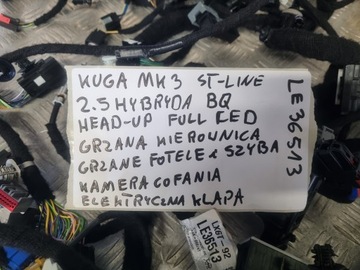 KUGA MK3 ST-LINE
2.5 HYBRYDA BQ
HEAD-UP FULL LED
GRZANA KIEROWNICA
GRZANE FOTELE & SZYBA
KAMERA COFANIA
ELEKTRYCZNA KLAPA
LE36513
LX6T-92
LE36513